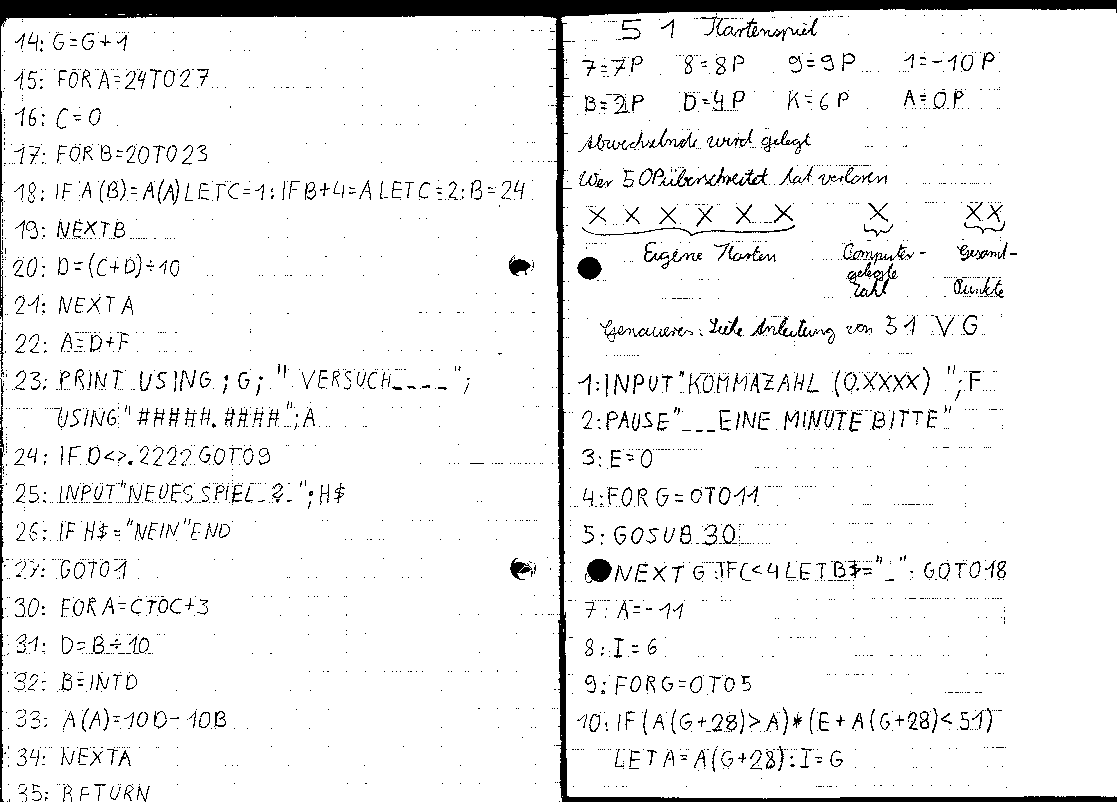 14: G=G+1
15: FOR A=24TO27
16: C=0
17: FOR B=20TO23
18: IF A(B)=A(A)LETC=1:IFB+4=ALETC=2:B=24
19: NEXTB
20: D=(C+D)÷10
21: NEXTA
22: A=D+F
23: PRINT USING;G;" VERSUCH____";
USING"#####.####";A
24: IF D<>.2222 GOTO9
25: INPUT"NEUES SPIEL_?_";H$
26: IF H$="NEIN"END
27: GOTO1
30: FOR A=CTOC+3
31: D=B÷10
32: B=INTD
33: A(A)=10D-10B
34: NEXTA
35: RETURN
51 Kartenspiel
7=7P 8=8P 9=9P 1=-10P
B=2P D=4P K=6P A=0P
Abwechselnde wird gelegt
Wer 50P überschreitet hat verloren
X X X X X X X XX
Eigene Karten Computer- Gesamt-
gelegte
Zahl Punkte
Genaueres: Siehe Anleitung von 51 VG
1:INPUT"KOMMAZAHL (0.XXXX) ";F
2:PAUSE"___EINE MINUTE BITTE"
3:E=0
4:FOR G=0TO11
5:GOSUB 30
NEXT G:IFC<4LETB$="_":GOTO18
7:A=-11
8:I=6
9:FORG=0TO5
10:IF(A(G+28)>A)*(E+A(G+28)<51)
LETA=A(G+28):I=G